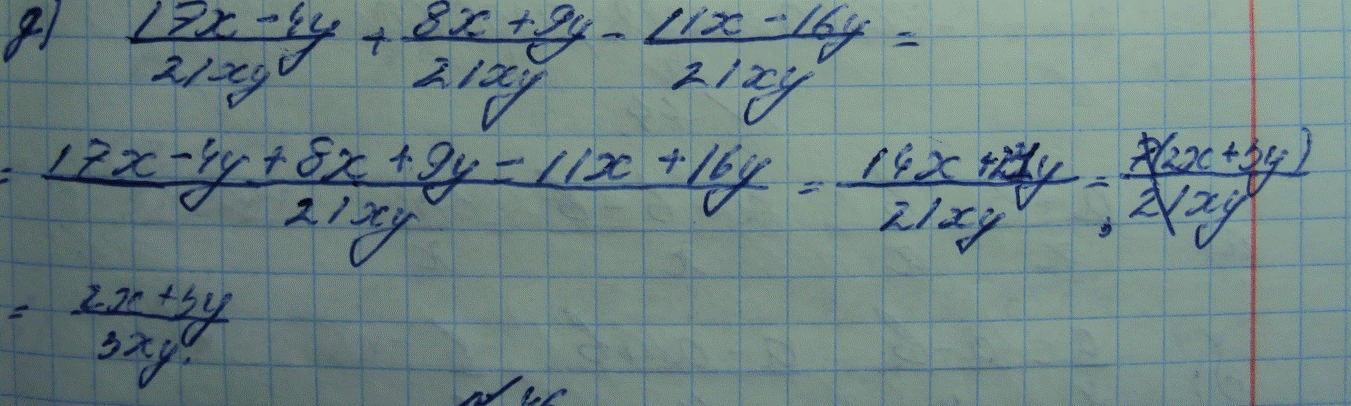 g) (17x-4y)/(21xy) + (8x+9y)/(21xy) - (11x-16y)/(21xy) =
= (17x-4y+8x+9y-11x+16y)/(21xy) = (14x+21y)/(21xy) = 7(2x+3y)/(21xy) 3
= (2x+3y)/(3xy).
№46